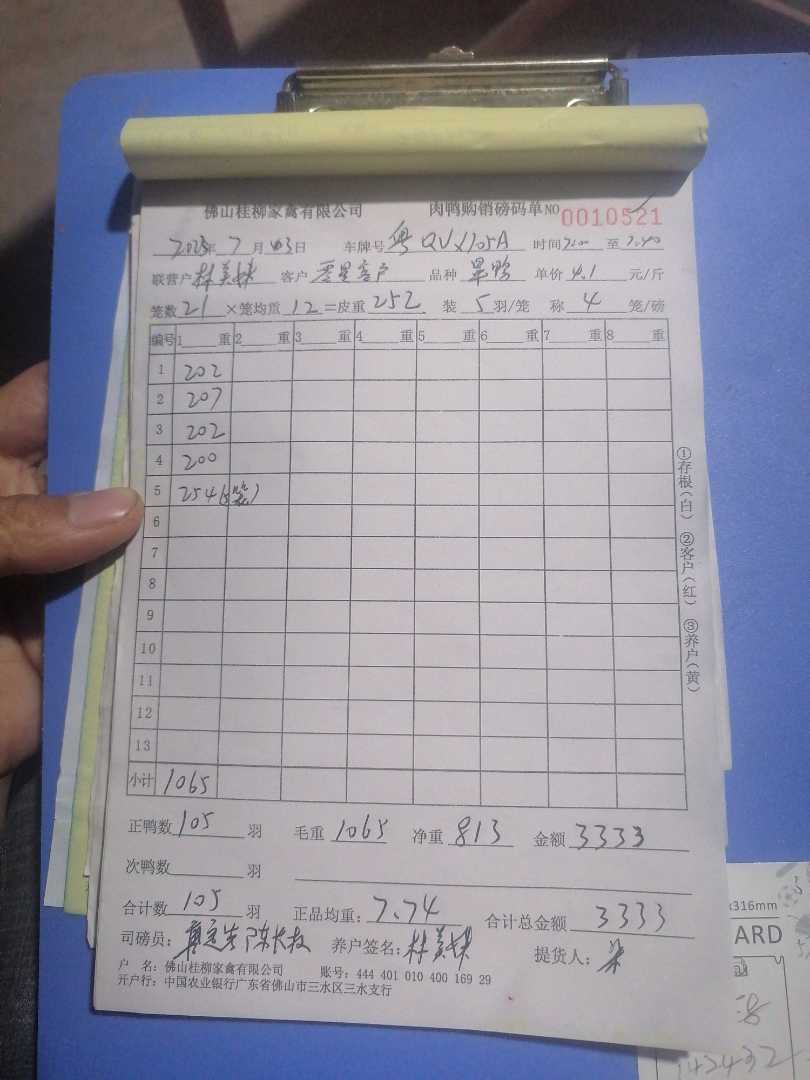 佛山桂柳家禽有限公司 肉鸭购销磅码单 NO 0010521
2023年 7月 03日 车牌号 粤QVX105A 时间 至
联营户 林美妹 客户 零星客户 品种 旱鸭 单价 4.1 元/斤
笼数 21 ×笼均重 12 =皮重 252 装 5 羽/笼 称 4 笼/磅
编号 1 重 2 重 3 重 4 重 5 重 6 重 7 重 8 重
1 202
2 207
3 202
4 200
5 254(5笼)
6
7
8
9
10
11
12
13
小计 1065
①存根(白) ②客户(红) ③养户(黄)
正鸭数 105 羽 毛重 1065 净重 813 金额 3333
次鸭数 羽
合计数 105 羽 正品均重: 7.74 合计总金额 3333
司磅员: 养户签名: 林美妹 提货人:
户 名: 佛山桂柳家禽有限公司 账号: 444 401 010 400 169 29
开户行: 中国农业银行广东省佛山市三水区三水支行
x316mm
ARD
142432